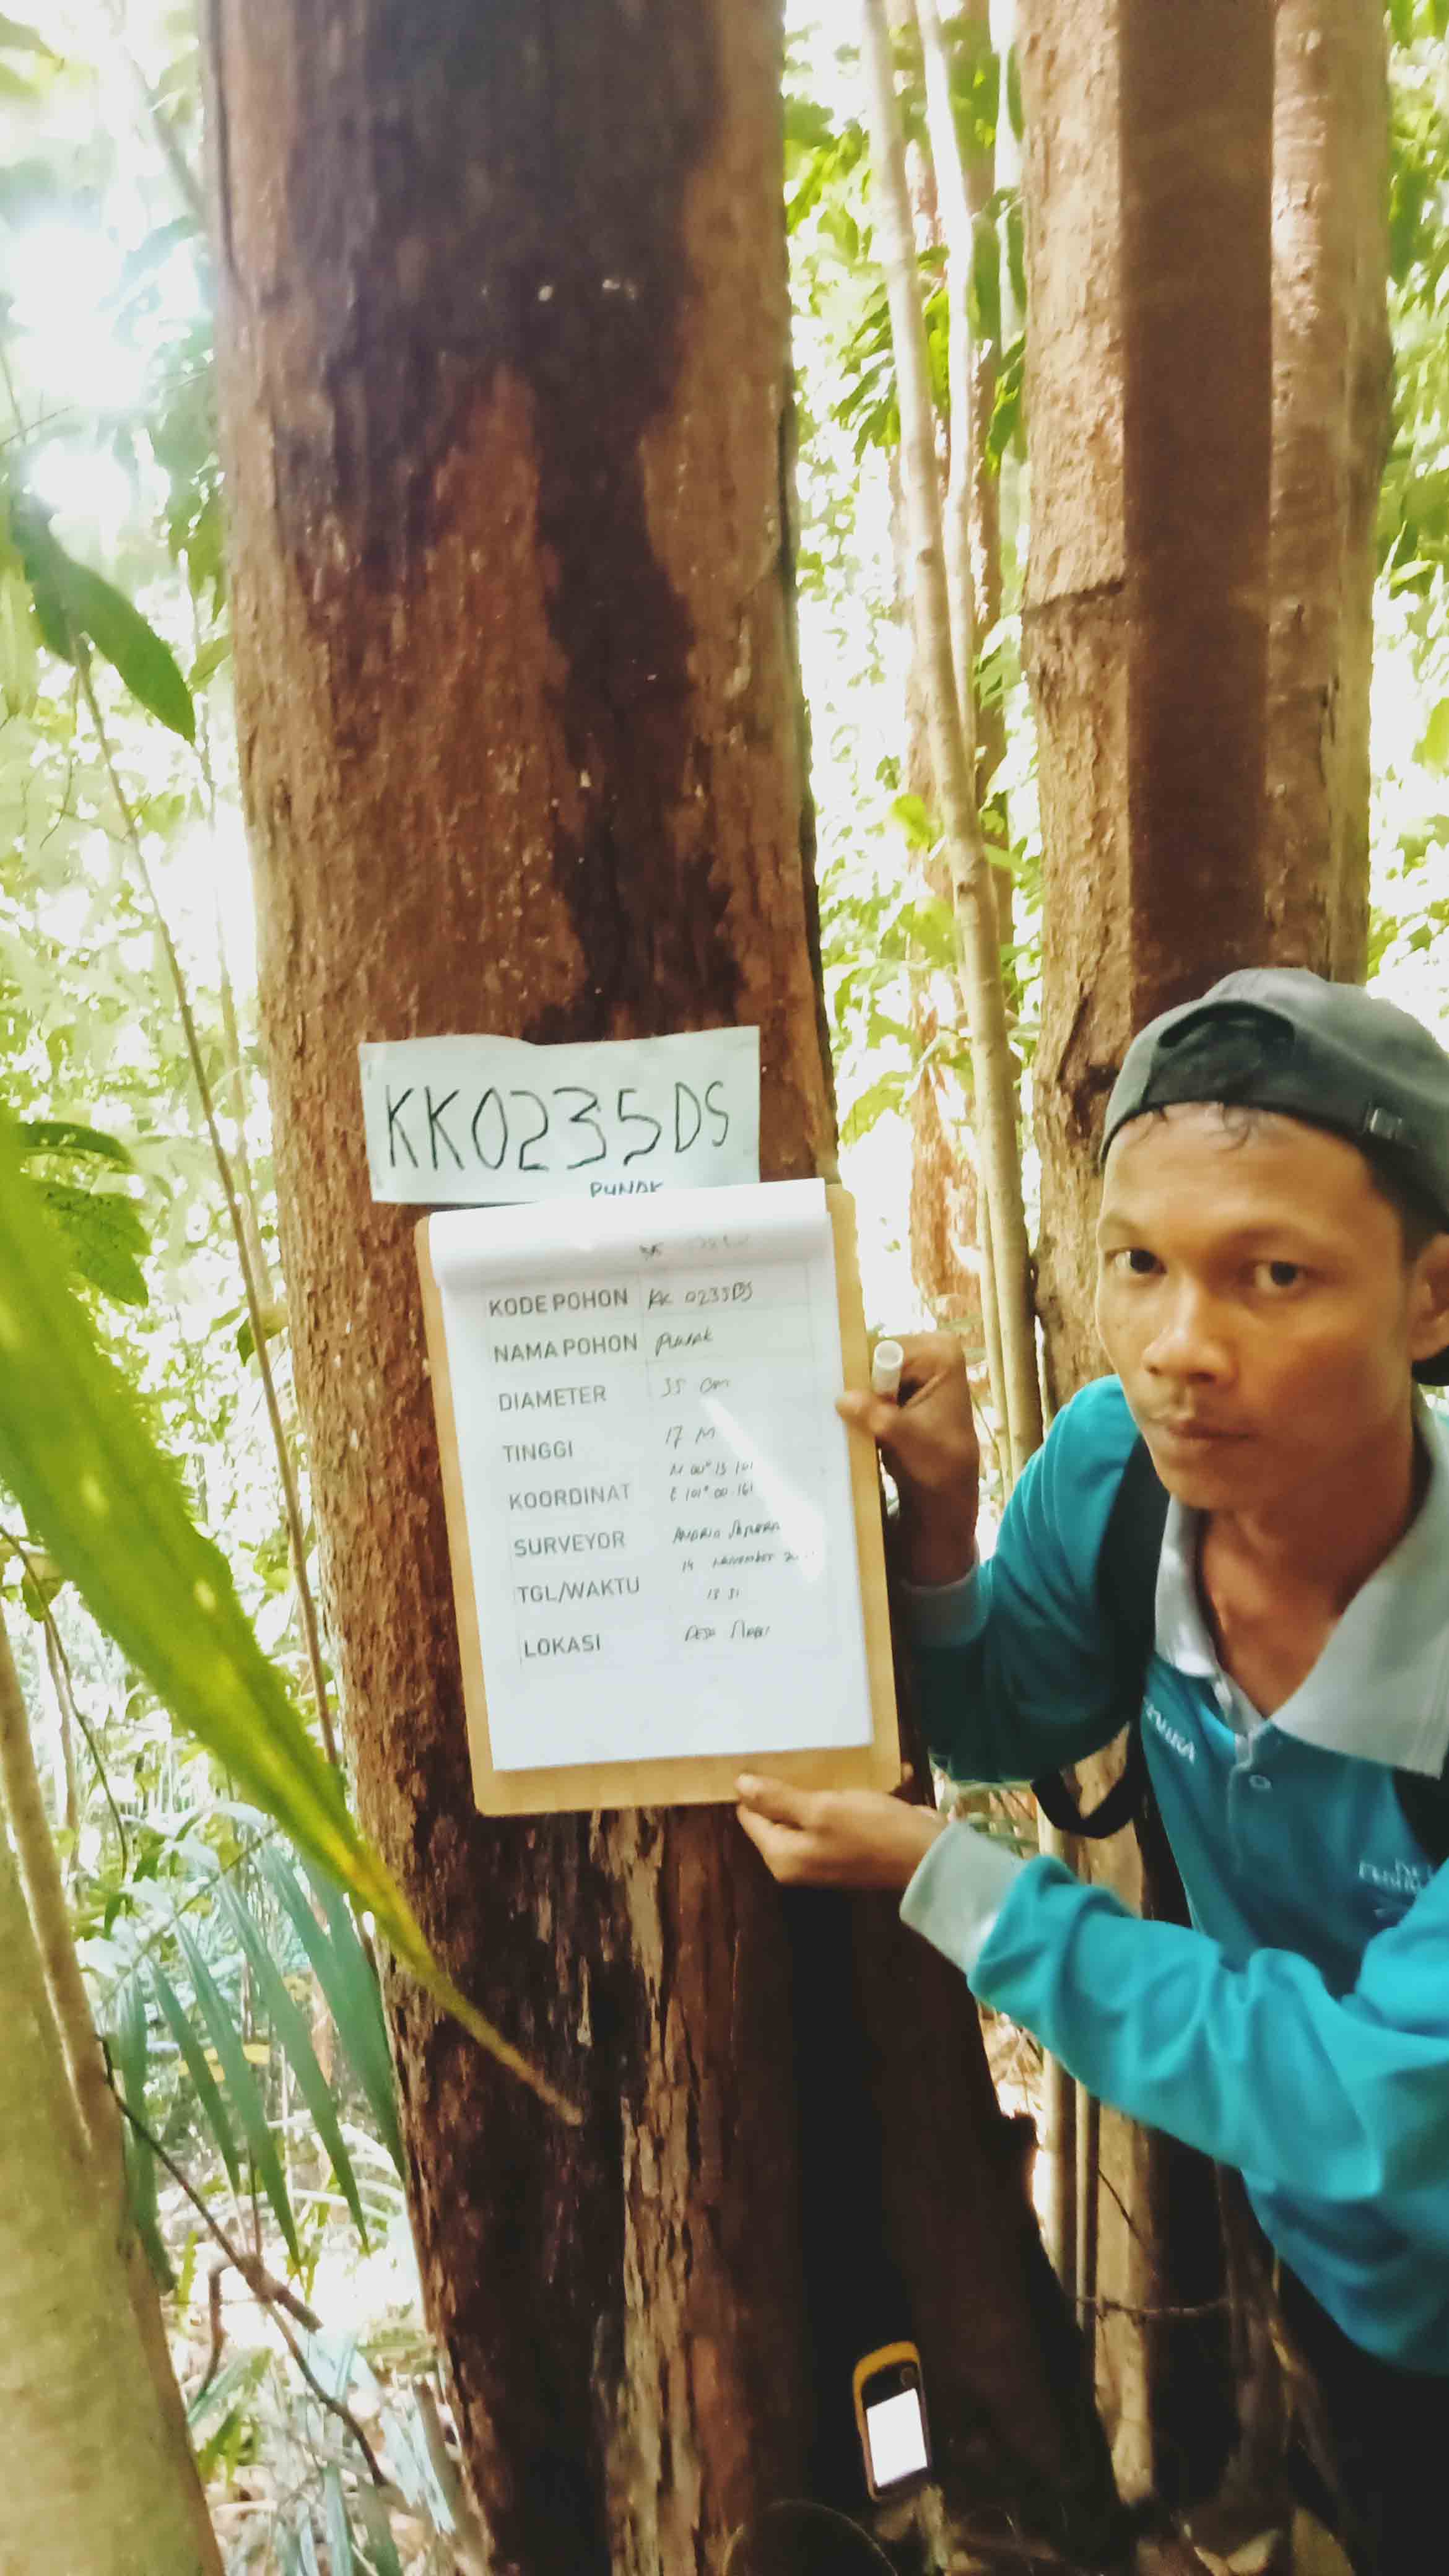 KK0235DS
PUNAK
KODE POHON KK 0235DS
NAMA POHON PUNAK
DIAMETER 35 cm
TINGGI 17 M
KOORDINAT N 00° 13 101
E 101° 00.161
SURVEYOR
TGL/WAKTU 14 November
13 31
LOKASI DESA